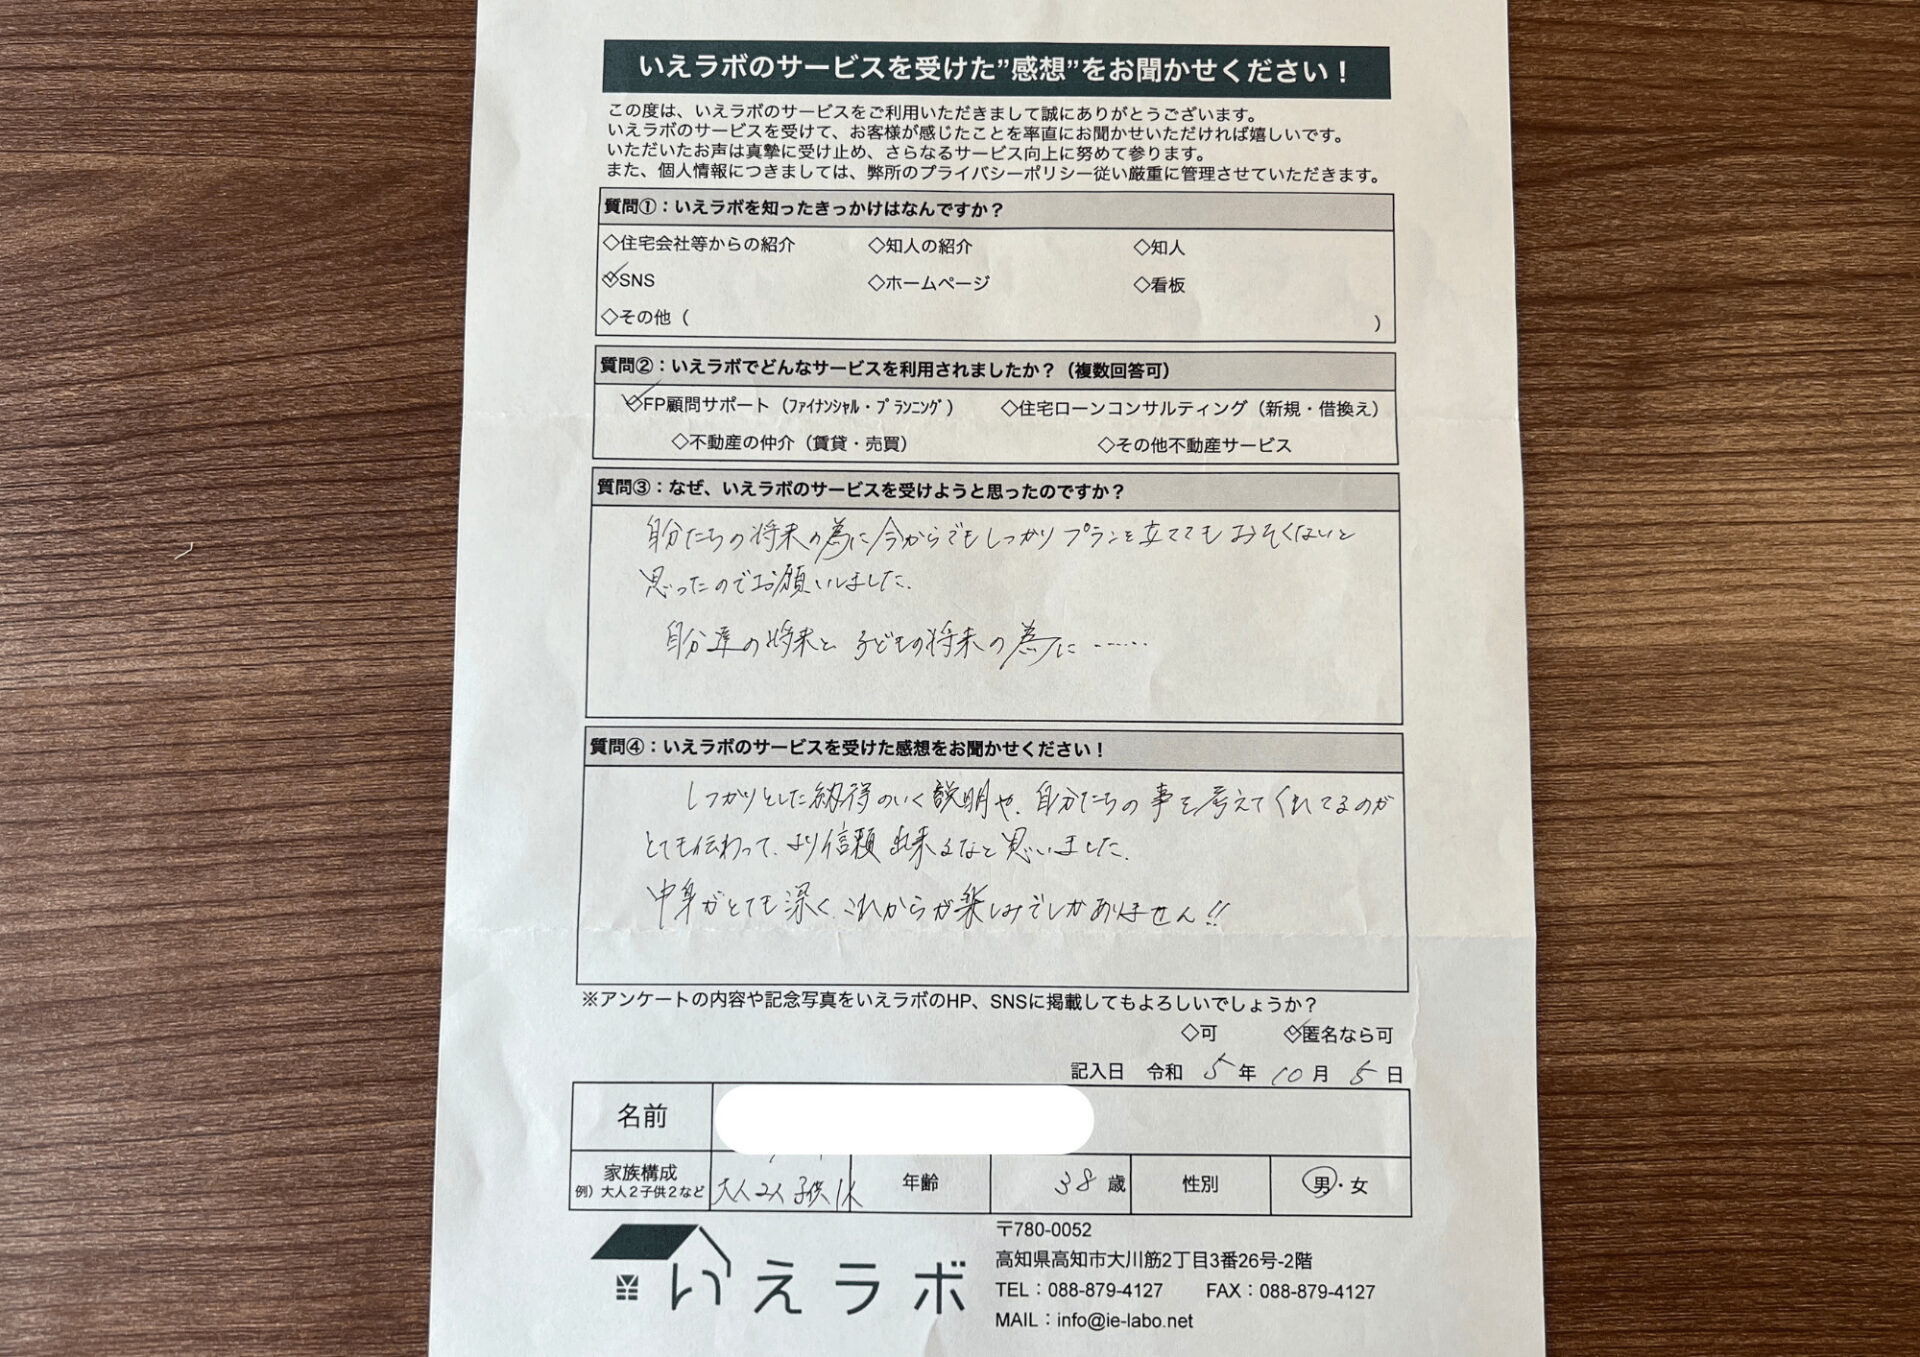 いえラボのサービスを受けた”感想”をお聞かせください！
この度は、いえラボのサービスをご利用いただきまして誠にありがとうございます。
いえラボのサービスを受けて、お客様が感じたことを率直にお聞かせいただければ嬉しいです。
いただいたお声は真摯に受け止め、さらなるサービス向上に努めて参ります。
また、個人情報につきましては、弊所のプライバシーポリシー従い厳重に管理させていただきます。
質問①：いえラボを知ったきっかけはなんですか？
◇住宅会社等からの紹介 ◇知人の紹介 ◇知人
◇SNS ◇ホームページ ◇看板
◇その他（ ）
質問②：いえラボでどんなサービスを利用されましたか？（複数回答可）
◇FP顧問サポート（ﾌｧｲﾅﾝｼｬﾙ・ﾌﾟﾗﾝﾆﾝｸﾞ） ◇住宅ローンコンサルティング（新規・借換え）
◇不動産の仲介（賃貸・売買） ◇その他不動産サービス
質問③：なぜ、いえラボのサービスを受けようと思ったのですか？
自分たちの将来の為に今からでもしっかりプランを立ててもおそくないと
思ったのでお願いしました。
自分達の将来と子どもの将来の為に……
質問④：いえラボのサービスを受けた感想をお聞かせください！
しっかりとした納得のいく説明や、自分たちの事を考えてくれてるのが
とても伝わって、より信頼出来るなと思いました。
中身がとても深く、これからが楽しみでしかありません!!
※アンケートの内容や記念写真をいえラボのHP、SNSに掲載してもよろしいでしょうか？
◇可 ◇匿名なら可
記入日 令和 5 年 10 月 5 日
名前
家族構成 大人2人 子供1人 年齢 38 歳 性別 男・女
例）大人２子供２など
いえラボ
〒780-0052
高知県高知市大川筋2丁目3番26号-2階
TEL：088-879-4127 FAX：088-879-4127
MAIL：info@ie-labo.net